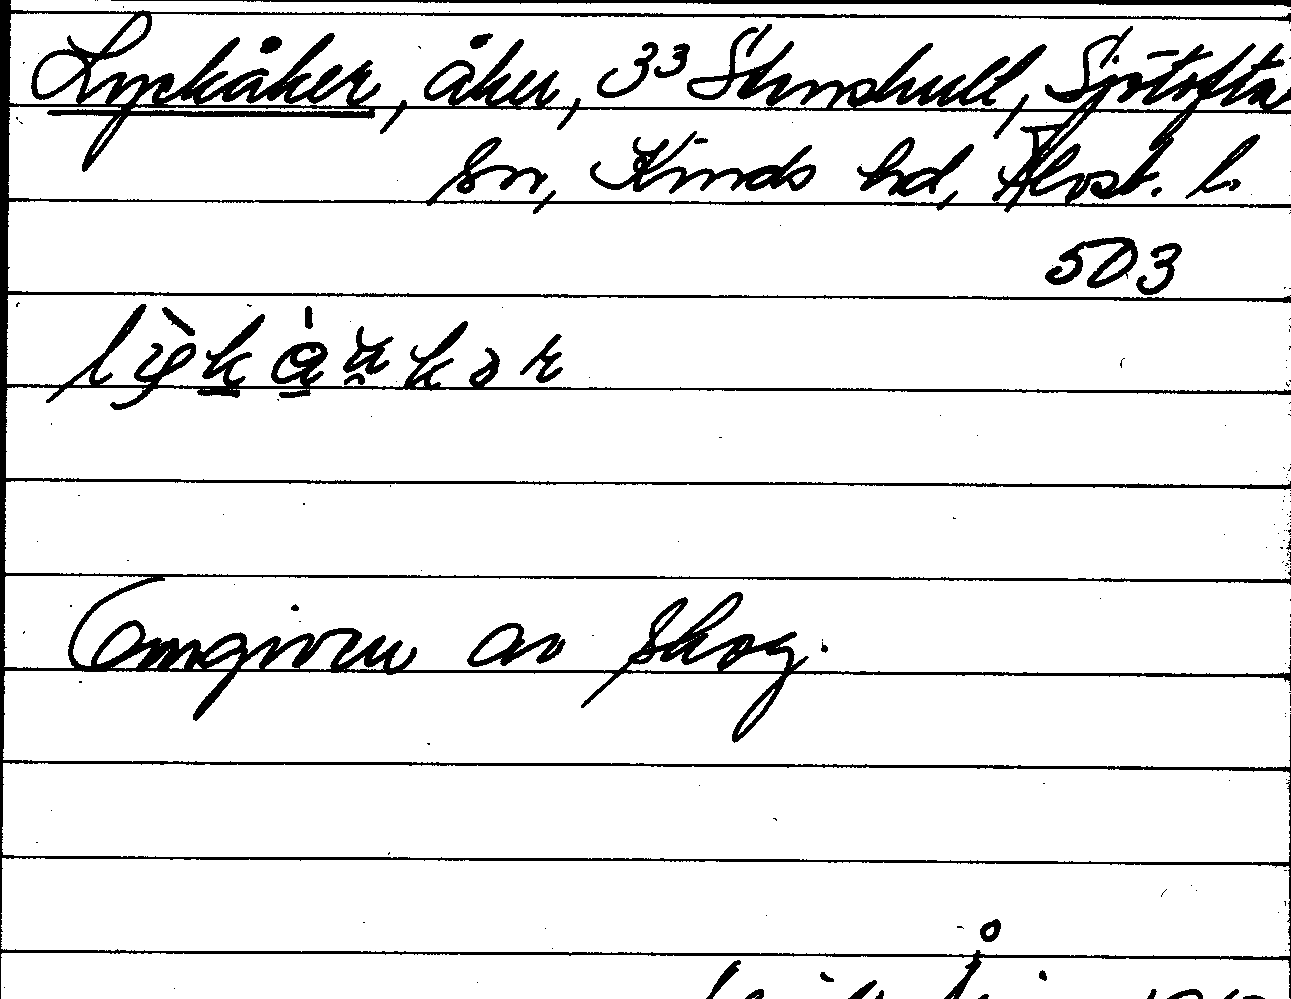 Lyckåker, åker, 3³ Stenshult, Sjötofta
sn, Kinds hd, Älvsb. l.
503
Omgiven av skog.